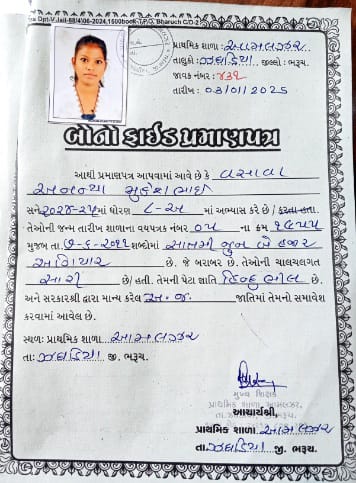 Dpt-V.Jail-88/4-06-2024,1500book-1.P.O. Bharuch C/D-2
પ્રાથમિક શાળા : આમલઝર
તાલુકો: ઝઘડિયા જીલ્લો : ભરૂચ.
જાવક નંબર : ૪૩૧
તારીખ : 03/01/2025
બોનોફાઈડ પ્રમાણપત્ર
આથી પ્રમાણપત્ર આપવામાં આવે છે કે વસાવા
અનન્યા મુકેશભાઇ
સને ૨૦૨૪-૨૫ માં ધોરણ ૮-અ માં અભ્યાસ કરે છે / કરતા હતા.
તેઓની જન્મ તારીખ શાળાના વયપત્રક નંબર ૦૫ ના ક્રમ ૧૯૫૫
મુજબ તા ૭-૬-૨૦૧૧ શબ્દોમાં સાતમી જુન બે હજાર
અગિયાર છે. જે બરાબર છે. તેઓની ચાલચલગત
સારી છે/ હતી. તેમની પેટા જ્ઞાતિ હિન્દુ ભીલ છે.
અને સરકારશ્રી દ્વારા માન્ય કરેલ અ.જ. જાતિમાં તેમનો સમાવેશ
કરવામાં આવેલ છે.
સ્થળ: પ્રાથમિક શાળા આમલઝર
તા: ઝઘડિયા જી. ભરૂચ.
મુખ્ય શિક્ષક
પ્રાથમિક શાળા, આમલઝર,
આચાર્યશ્રી,
પ્રાથમિક શાળા આમલઝર
તા. ઝઘડિયા જી. ભરૂચ.